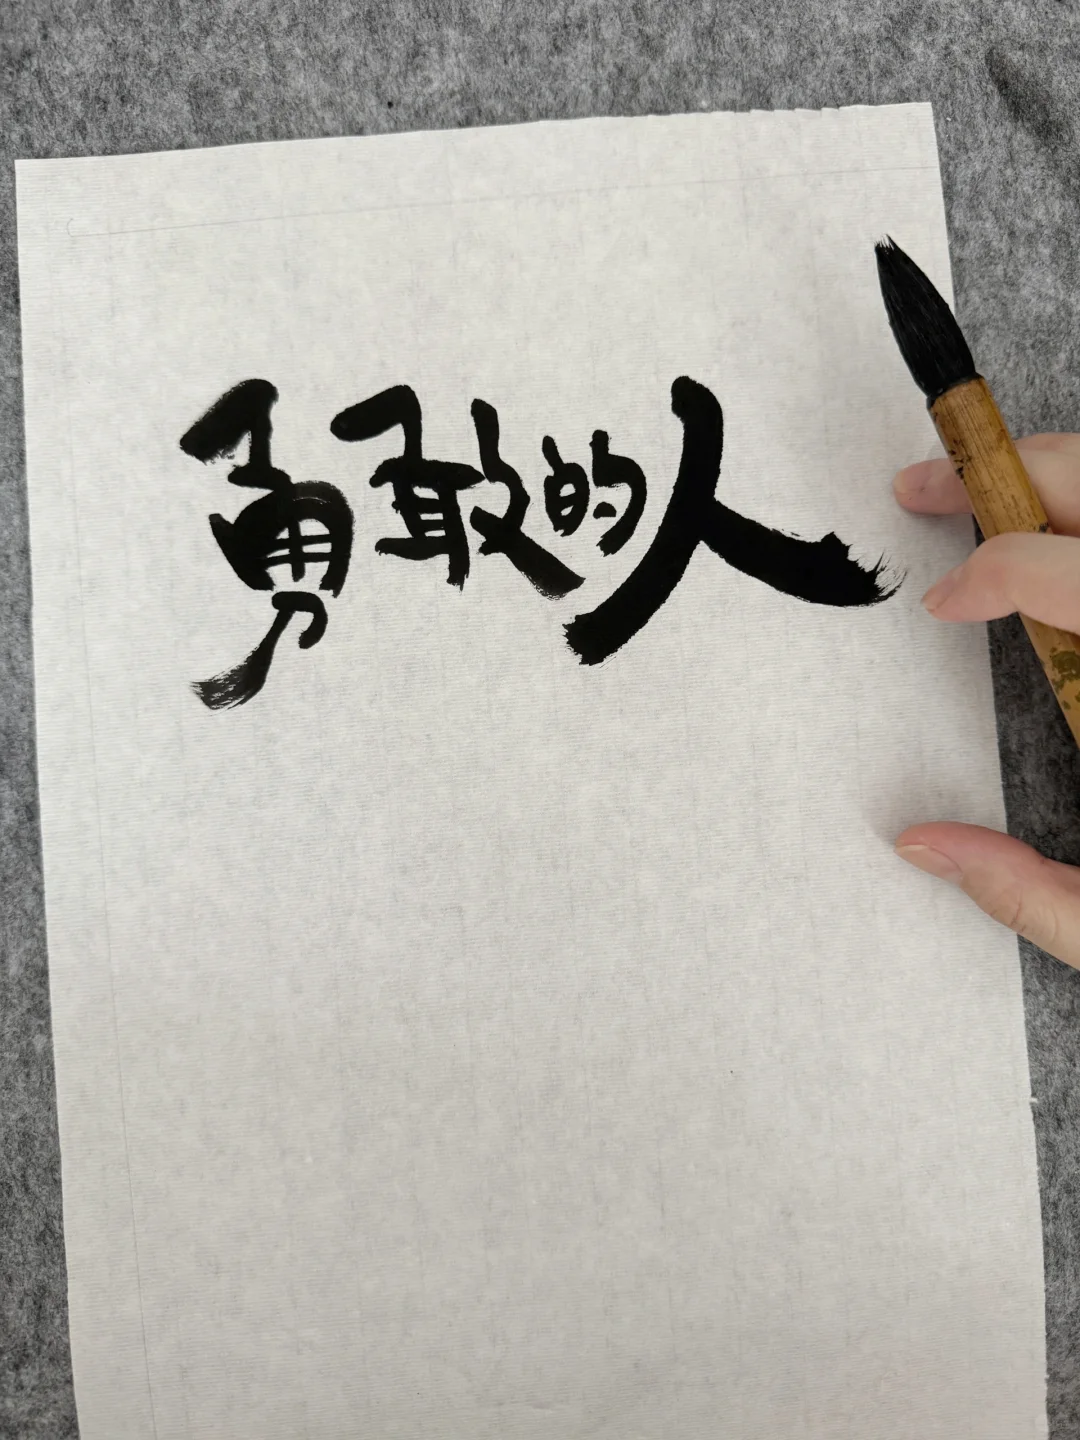 勇敢的人